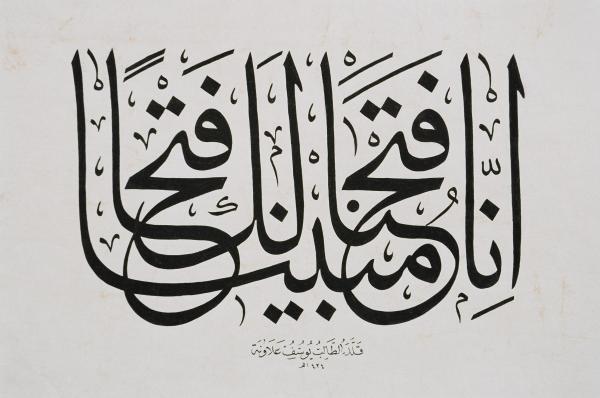 إِنَّا فَتَحْنَا لَكَ فَتْحًا مُبِينًا
قلّده الطالب يوسف علاونة
١٤٢٤هـ